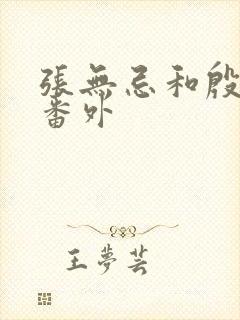 張無忌和殷
番外
王夢芸